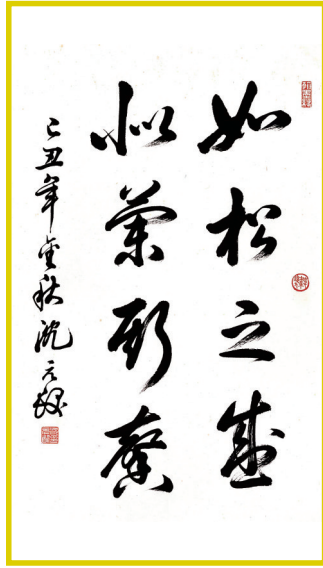 如松之盛
似蘭斯馨
己丑年金秋沈元